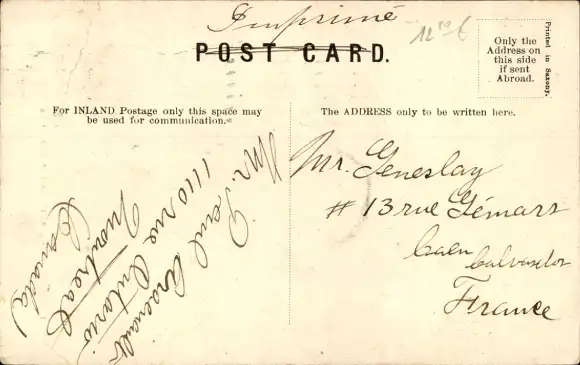 Imprimé
POST CARD.
Only the
Address on
this side
if sent
Abroad.
Printed in Saxony.
For INLAND Postage only this space may
be used for communication.
The ADDRESS only to be written here.
Mr. Geneslay
# 13 rue Gémare
Caen
Calvados
France
Mr. Paul
1110 rue Ontario
Montreal
Canada